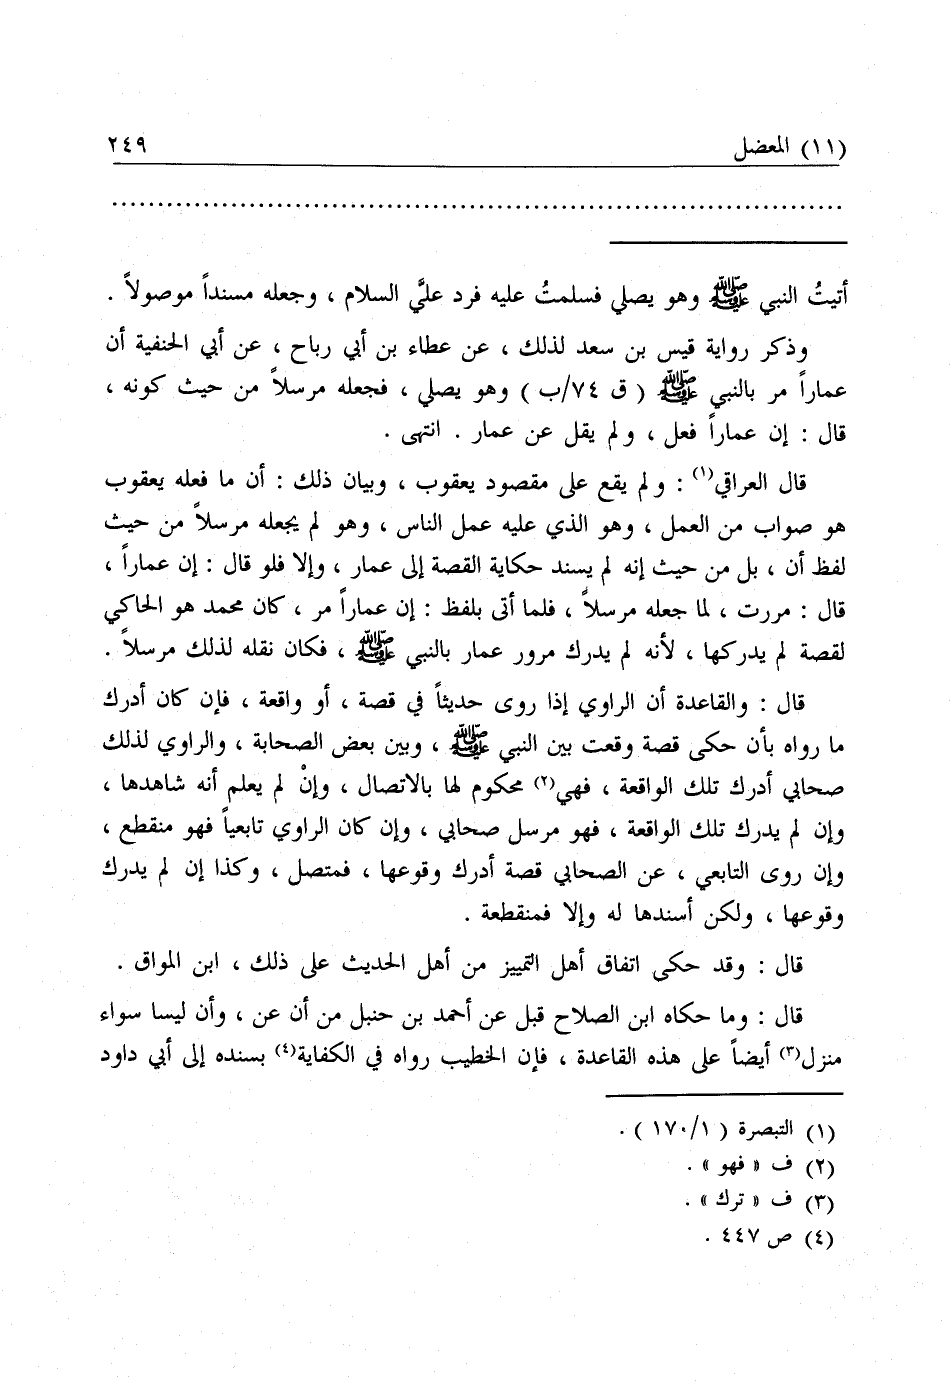 (١١) المعضل ٢٤٩
أتيتُ النبي ﷺ وهو يصلي فسلمتُ عليه فرد عليَّ السلام ، وجعله مسنداً موصولاً .
وذكر رواية قيس بن سعد لذلك ، عن عطاء بن أبي رباح ، عن أبي الحنفية أن
عماراً مر بالنبي ﷺ ( ق ٧٤/ب ) وهو يصلي ، فجعله مرسلاً من حيث كونه ،
قال : إن عماراً فعل ، ولم يقل عن عمار . انتهى .
قال العراقي(١) : ولم يقع على مقصود يعقوب ، وبيان ذلك : أن ما فعله يعقوب
هو صواب من العمل ، وهو الذي عليه عمل الناس ، وهو لم يجعله مرسلاً من حيث
لفظ أن ، بل من حيث إنه لم يسند حكاية القصة إلى عمار ، وإلا فلو قال : إن عماراً ،
قال : مررت ، لما جعله مرسلاً ، فلما أتى بلفظ : إن عماراً مر ، كان محمد هو الحاكي
لقصة لم يدركها ، لأنه لم يدرك مرور عمار بالنبي ﷺ ، فكان نقله لذلك مرسلاً .
قال : والقاعدة أن الراوي إذا روى حديثاً في قصة ، أو واقعة ، فإن كان أدرك
ما رواه بأن حكى قصة وقعت بين النبي ﷺ ، وبين بعض الصحابة ، والراوي لذلك
صحابي أدرك تلك الواقعة ، فهي(٢) محكوم لها بالاتصال ، وإنْ لم يعلم أنه شاهدها ،
وإن لم يدرك تلك الواقعة ، فهو مرسل صحابي ، وإن كان الراوي تابعياً فهو منقطع ،
وإن روى التابعي ، عن الصحابي قصة أدرك وقوعها ، فمتصل ، وكذا إن لم يدرك
وقوعها ، ولكن أسندها له وإلا فمنقطعة .
قال : وقد حكى اتفاق أهل التمييز من أهل الحديث على ذلك ، ابن المواق .
قال : وما حكاه ابن الصلاح قبل عن أحمد بن حنبل من أن عن ، وأن ليسا سواء
منزل(٣) أيضاً على هذه القاعدة ، فإن الخطيب رواه في الكفاية(٤) بسنده إلى أبي داود
(١) التبصرة ( ١٧٠/١ ) .
(٢) ف « فهو » .
(٣) ف « ترك » .
(٤) ص ٤٤٧ .